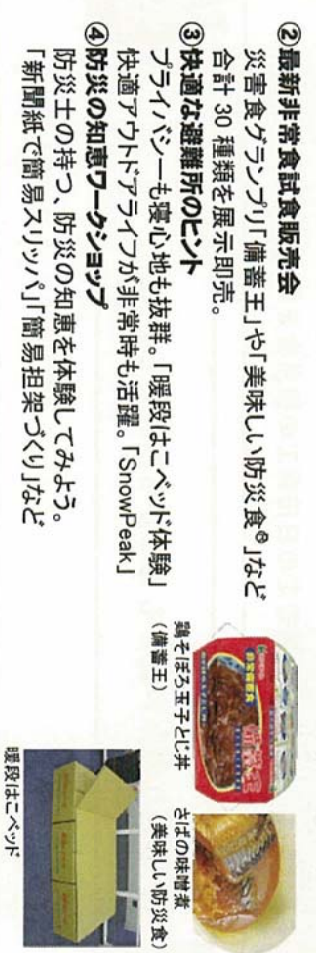 ②最新非常食試食販売会
災害食グランプリ「備蓄王」や「美味しい防災食®」など
合計30種類を展示即売。
③快適な避難所のヒント
プライバシーも寝心地も抜群。「暖段はこベッド体験」
快適アウトドアライフが非常時も活躍。「SnowPeak」
④防災の知恵ワークショップ
防災士の持つ、防災の知恵を体験してみよう。
「新聞紙で簡易スリッパ」「簡易担架づくり」など
鶏そぼろ玉子とじ丼
(備蓄王)
さばの味噌煮
(美味しい防災食)
備蓄王
暖段はこベッド